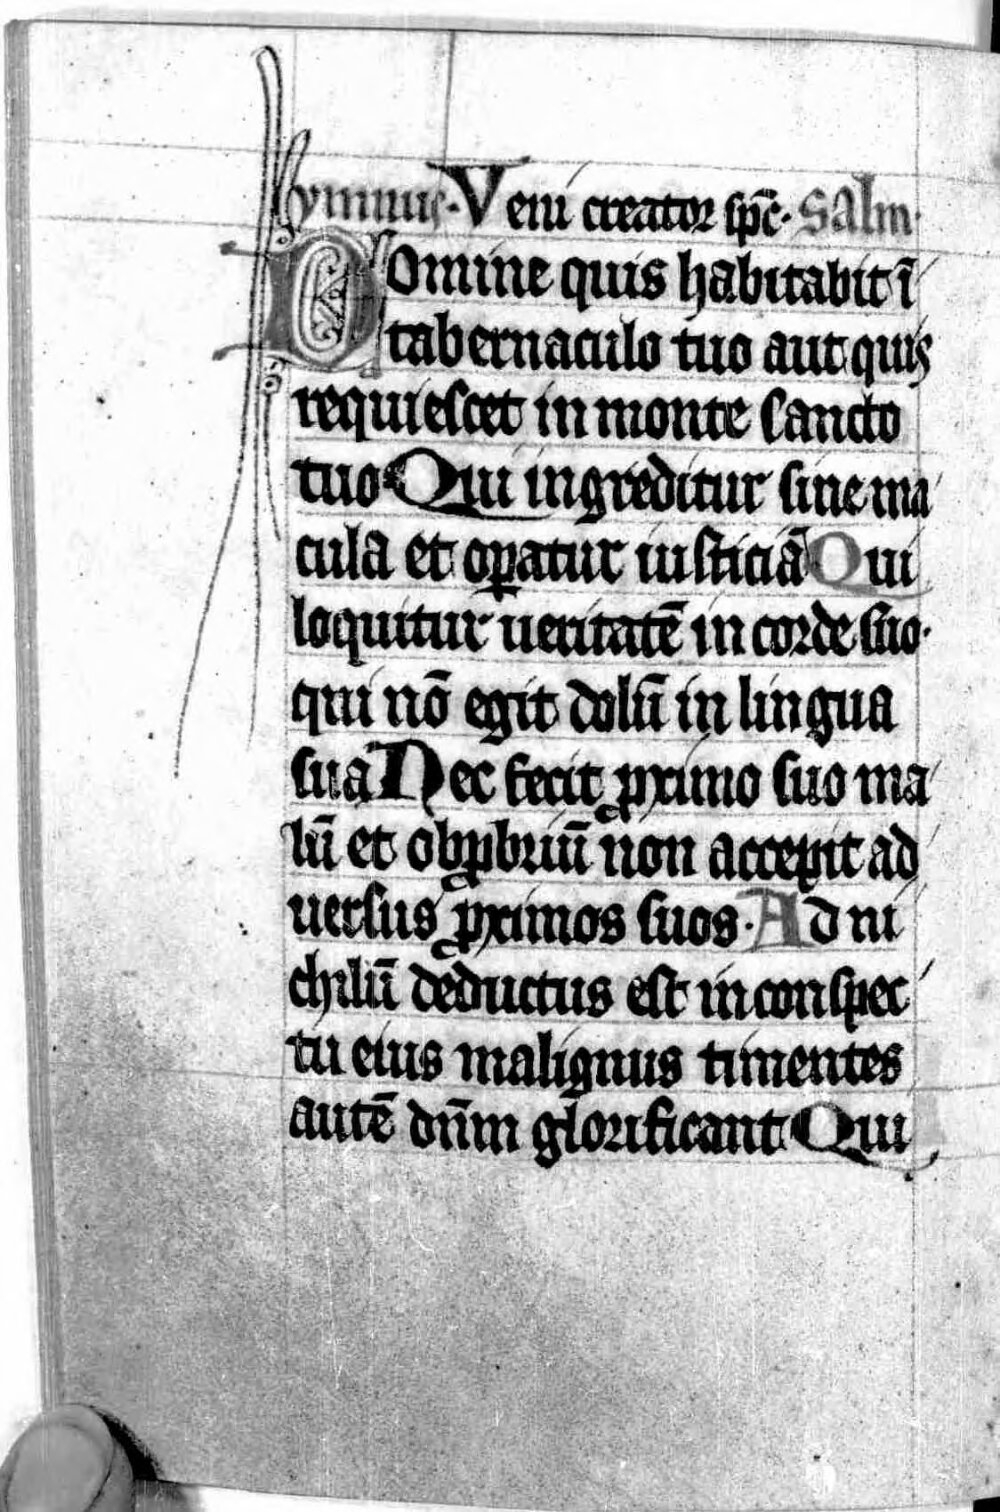 hymnus· Veni creator sp̄c· Salm·
Domine quis habitabit ī
tabernaculo tuo aut quis
requiescet in monte sancto
tuo Qui ingreditur sine ma
cula et oꝑatur iusticiā Qui
loquitur ueritatē in corde suo·
qui nō egit dolū in lingua
sua Nec fecit ꝓximo suo ma
lū et obꝓbriū non accepit ad
uersus ꝓximos suos· Ad ni
chilū deductus est in conspec
tu eius malignus timentes
autē dn̄m glorificant Qui